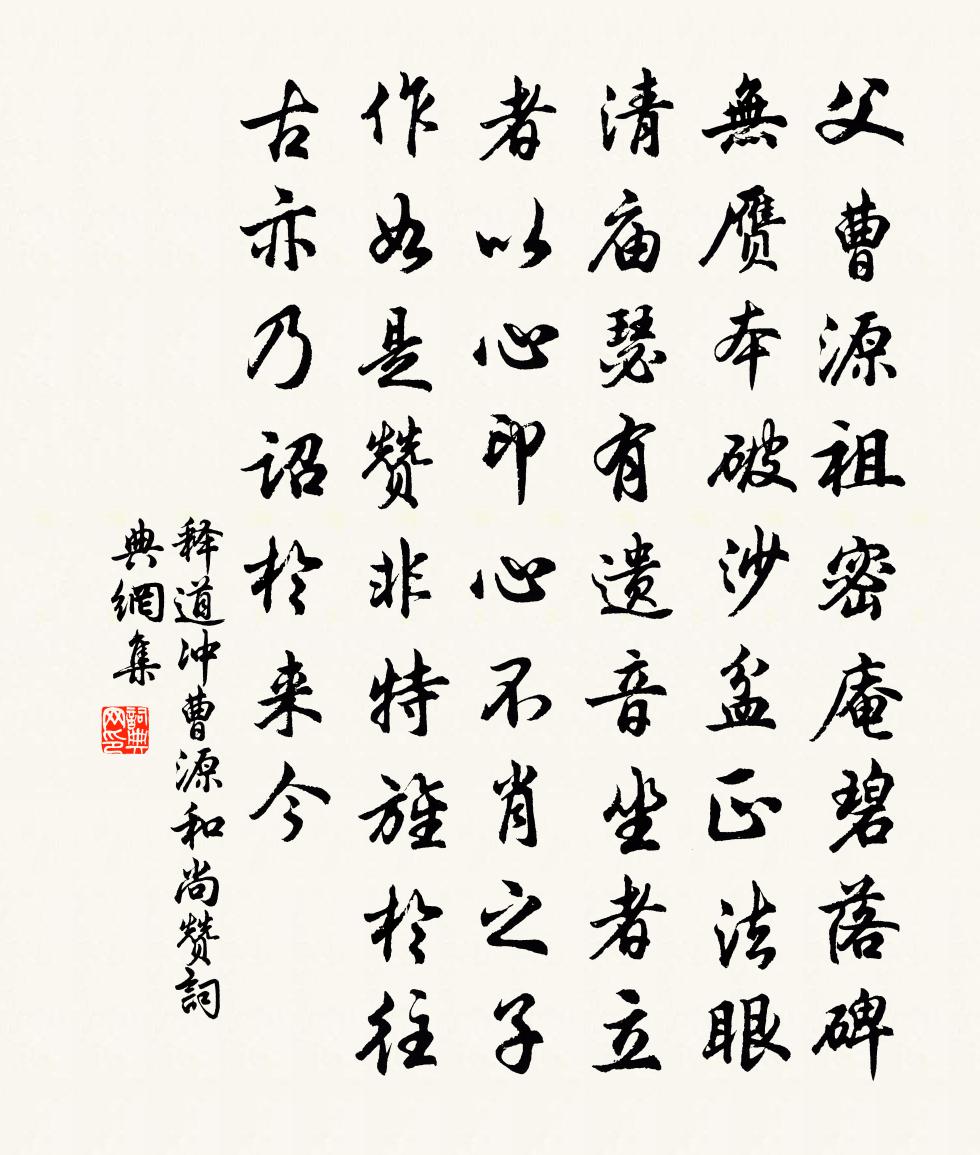 父曹源祖密庵碧落碑
無贗本破沙盆正法眼
清庙瑟有遗音坐者立
者以心印心不肖之子
作如是赞非特旌於往
古亦乃诏於来今
释道冲曹源和尚赞詞
典網集
詞典网印